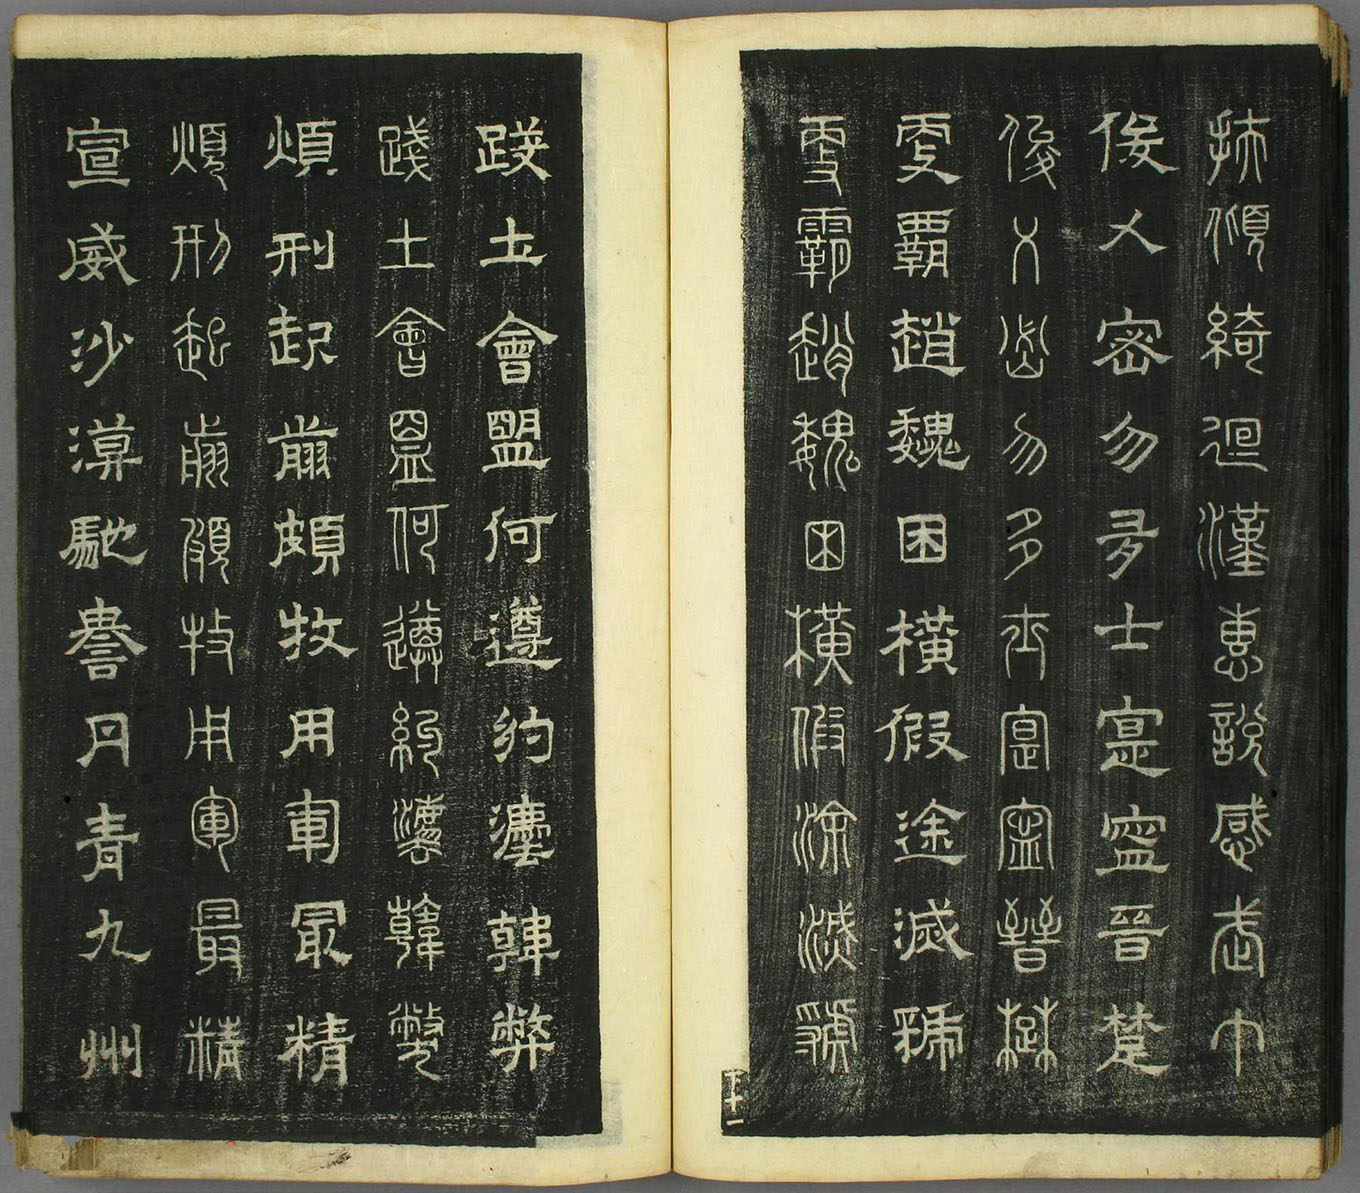 扶傾綺迴漢惠說感武丁
俊乂密勿多士寔寧晉楚
俊乂密勿多士寔寧晉楚
更霸趙魏困橫假途滅虢
更霸趙魏困橫假途滅虢
下十一
踐土會盟何遵約法韓弊
踐土會盟何遵約法韓弊
煩刑起翦頗牧用軍最精
煩刑起翦頗牧用軍最精
宣威沙漠馳譽丹青九州